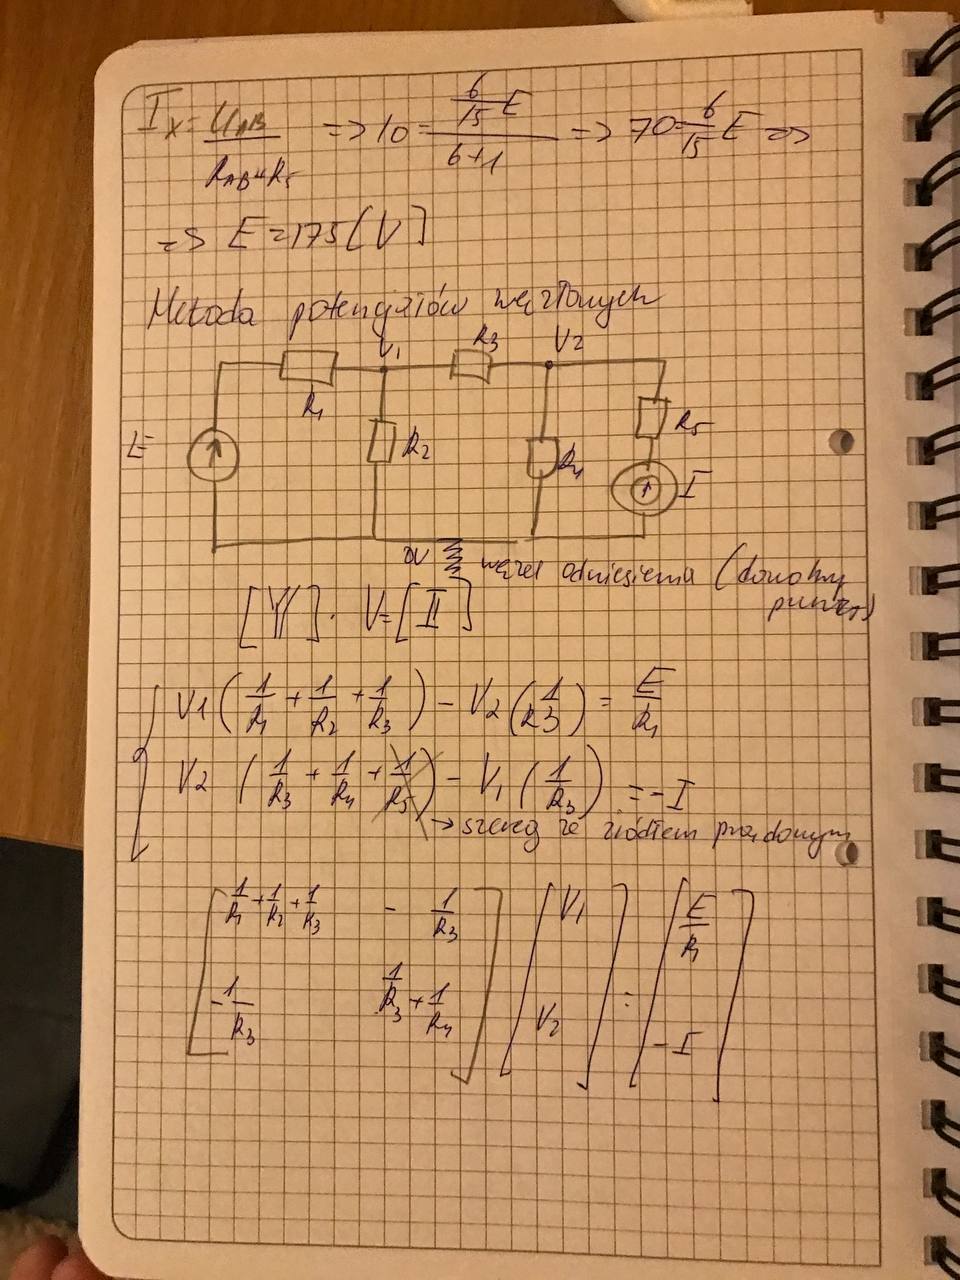 Ix = UAB / (RAB + R5) => 10 = (6/15 E) / (6+1) => 70 = 6/15 E =>
=> E = 175 [V]
Metoda potencjałów węzłowych
V1 R3 V2
R1
E R2 R4 R5 I
0V węzeł odniesienia (dowolny punkt)
[Y] · V = [I]
V1 (1/R1 + 1/R2 + 1/R3) - V2 (1/R3) = E/R1
V2 (1/R3 + 1/R4 + 1/R5) - V1 (1/R3) = -I
→ szereg ze źródłem prądowym
1/R1 + 1/R2 + 1/R3 - 1/R3 V1 E/R1
=
-1/R3 1/R3 + 1/R4 V2 -I